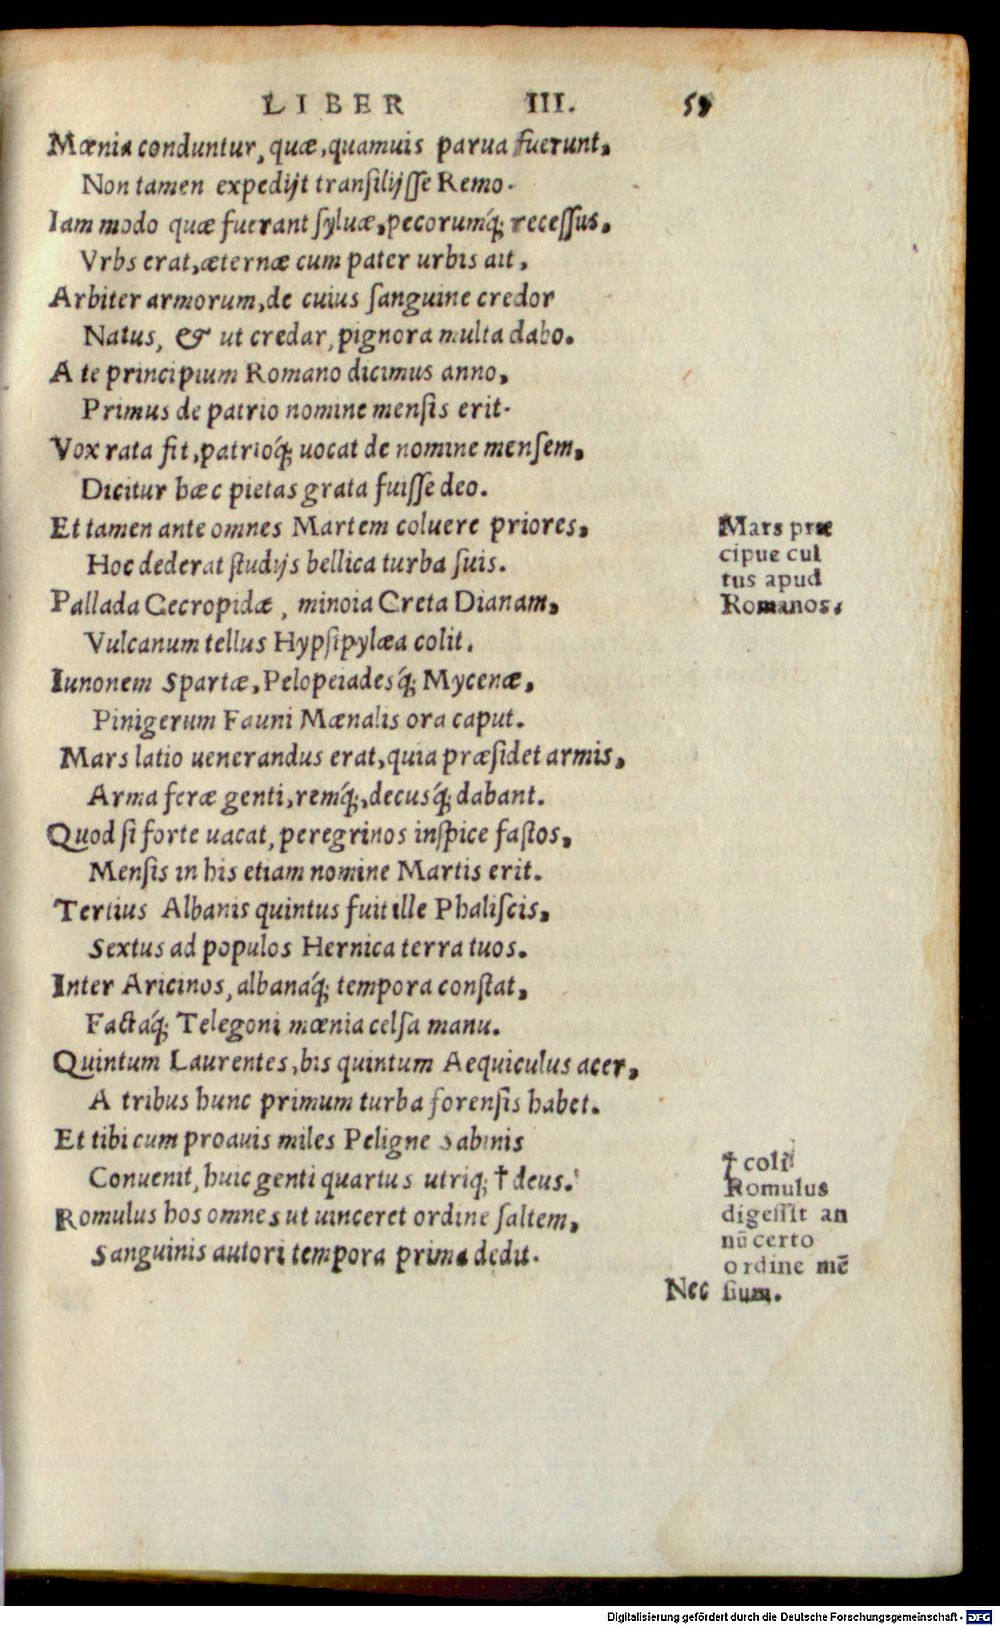 LIBER III. 59
Mœnia conduntur, quæ, quamuis parua fuerunt,
Non tamen expedijt transilijsse Remo.
Iam modo quæ fuerant syluæ, pecorumq́; recessus,
Vrbs erat, æternæ cum pater urbis ait,
Arbiter armorum, de cuius sanguine credor
Natus, & ut credar, pignora multa dabo.
A te principium Romano dicimus anno,
Primus de patrio nomine mensis erit.
Vox rata fit, patrioq́; uocat de nomine mensem,
Dicitur hæc pietas grata fuisse deo.
Et tamen ante omnes Martem coluere priores,
Hoc dederat studijs bellica turba suis.
Pallada Cecropidæ, minoia Creta Dianam,
Vulcanum tellus Hypsipylæa colit.
Iunonem Spartæ, Pelopeiadesq́; Mycenæ,
Pinigerum Fauni Mænalis ora caput.
Mars latio uenerandus erat, quia præsidet armis,
Arma feræ genti, remq́;, decusq́; dabant.
Quod si forte uacat, peregrinos inspice fastos,
Mensis in his etiam nomine Martis erit.
Tertius Albanis quintus fuit ille Phaliscis,
Sextus ad populos Hernica terra tuos.
Inter Aricinos, albanaq́; tempora constat,
Factaq́; Telegoni mœnia celsa manu.
Quintum Laurentes, bis quintum Aequiculus acer,
A tribus hunc primum turba forensis habet.
Et tibi cum proauis miles Peligne Sabinis
Conuenit, huic genti quartus utriq; † deus.
Romulus hos omnes ut uinceret ordine saltem,
Sanguinis autori tempora prima dedit.
Nec
Mars præ
cipue cul
tus apud
Romanos.
† coli
Romulus
digessit an
nū certo
ordine mē
sium.
Digitalisierung gefördert durch die Deutsche Forschungsgemeinschaft - DFG